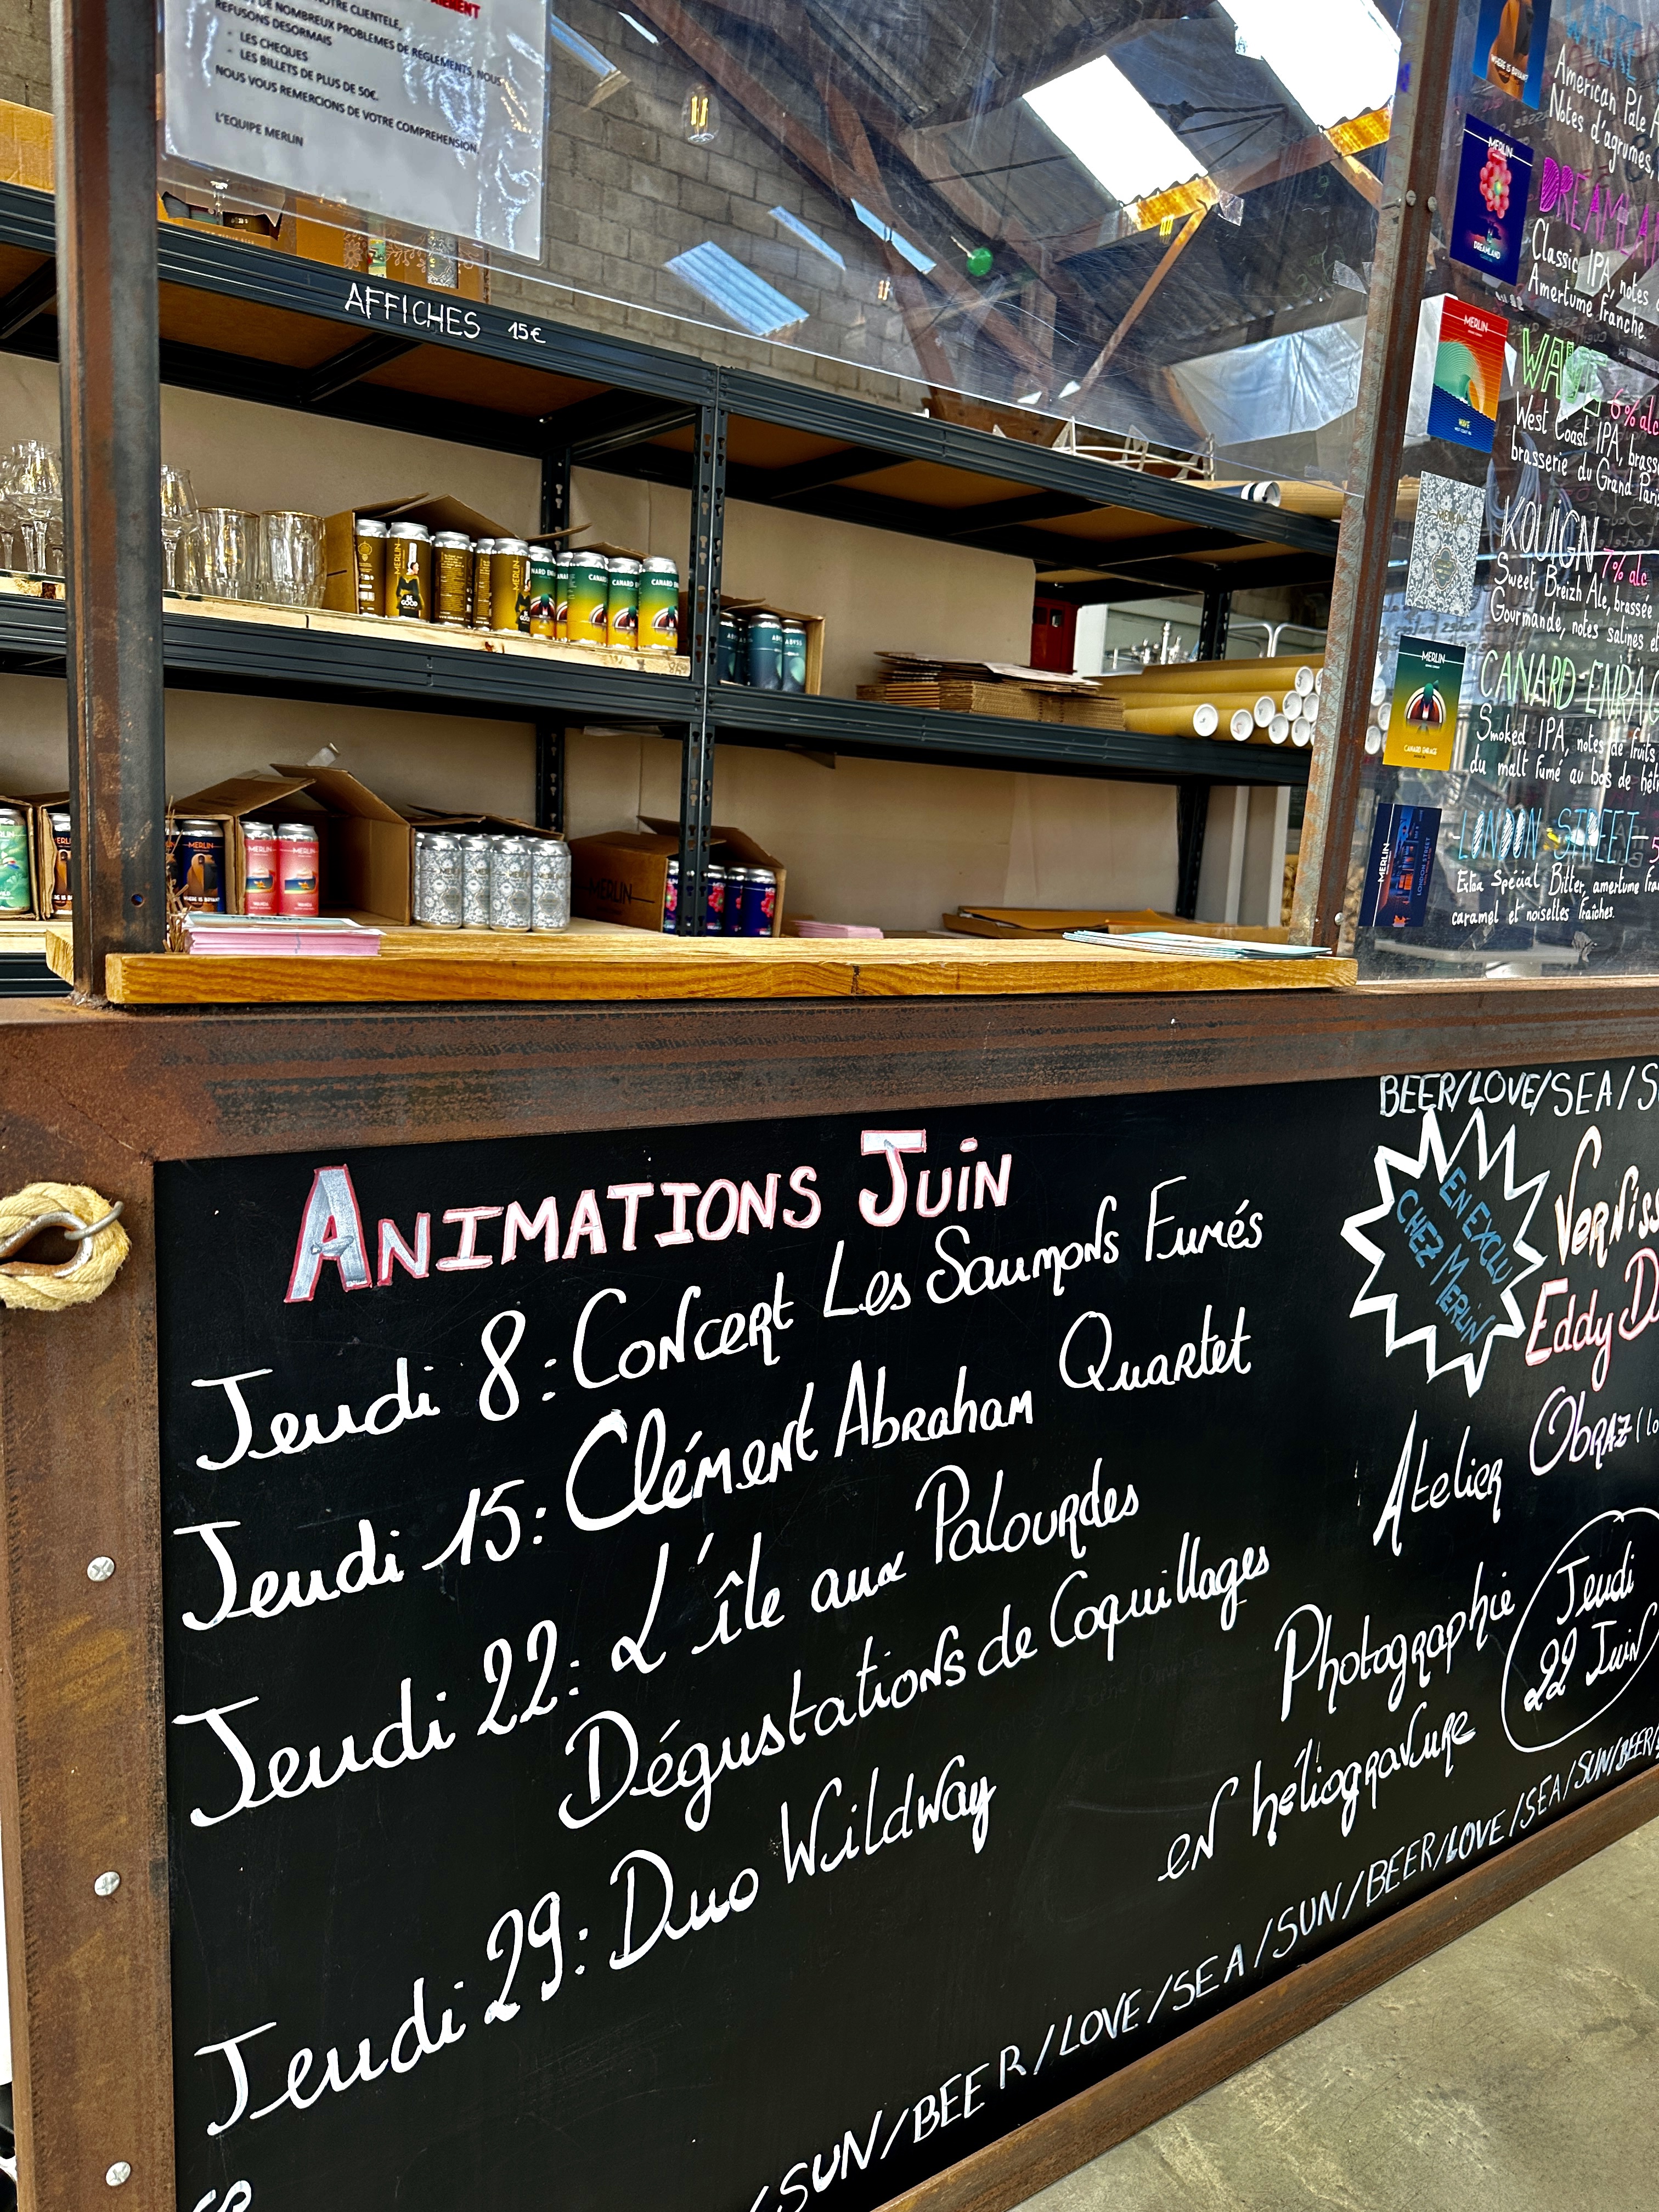 NOTRE CLIENTELE,
DE NOMBREUX PROBLEMES DE REGLEMENTS, NOUS
REFUSONS DESORMAIS
- LES CHEQUES
- LES BILLETS DE PLUS DE 50€.
NOUS VOUS REMERCIONS DE VOTRE COMPREHENSION.
L'EQUIPE MERLIN
AFFICHES 15€
WHERE IS BRYAN?
American Pale
Notes d'agrumes,
MERLIN
DREAMLAND
Classic IPA, notes
Amertume franche.
MERLIN
WAVE
WEST COAST IPA
WAVE 6% alc
West Coast IPA,
brasserie du Grand Paris
KOUIGN 7% alc
Sweet Breizh Ale, brassée
Gourmande, notes salines et
MERLIN
CANARD ENRAGE
CANARD ENRAG
Smoked IPA, notes de fruits
du malt fumé au bois de
MERLIN
LONDON STREET
LONDON STREET 5
Extra Special Bitter, amertume
caramel et noisettes fraîches.
MERLIN
BE GOOD
MERLIN
CANARD ENR
CANARD
CANARD EN
ABYSS
MERLIN
MERLIN
MERLIN
MERLIN
ANIMATIONS JUIN
Jeudi 8 : Concert Les Saumons Fumés
Jeudi 15 : Clément Abraham Quartet
Jeudi 22 : L'île aux Palourdes
Dégustations de Coquillages
Jeudi 29 : Duo Wildway
BEER/LOVE/SEA/S
EN EXCLU
CHEZ MERLIN
Verniss
Eddy D
Atelier Obraz
Photographie
en héliogravure
Jeudi
22 Juin
/SUN/BEER/LOVE/SEA/SUN/BEER/LOVE/SEA/SUN/BEER/